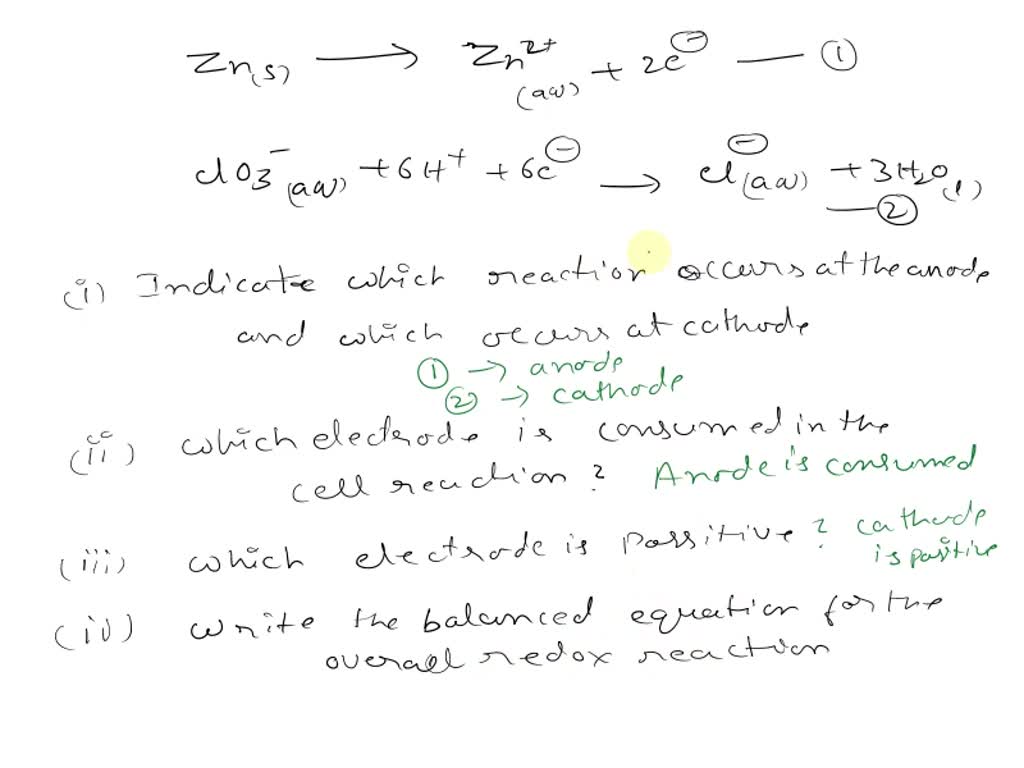 Zn(s) ⟶ Zn²⁺(aq) + 2e⊖ — ①
ClO3⁻(aq) + 6H⁺ + 6e⊖ ⟶ Cl⊖(aq) + 3H2O(l)
— ②
(i) Indicate which reaction occurs at the anode
and which occurs at cathode
① → anode
② → cathode
(ii) which electrode is consumed in the
cell reaction? Anode is consumed
(iii) which electrode is possitive? cathode
is positive
(iv) write the balanced equation for the
overall redox reaction